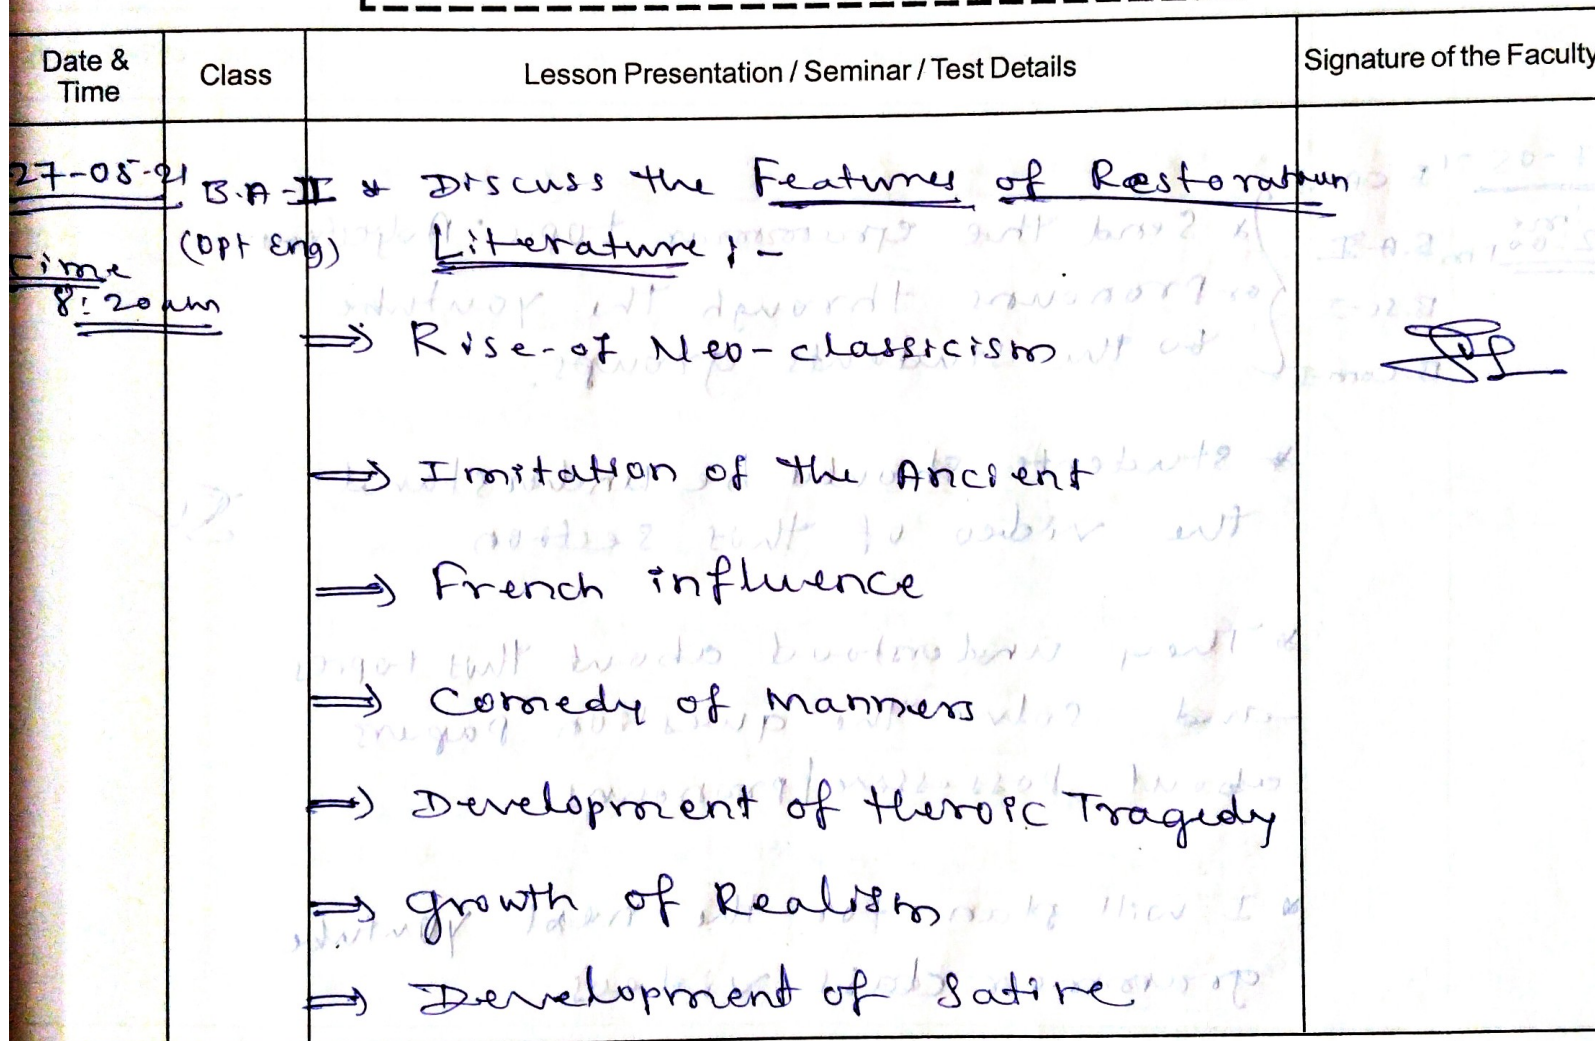 Date &
Time
Class
Lesson Presentation / Seminar / Test Details
Signature of the Faculty
27-05-21
Time
8:20 am
B.A-II
(Opt Eng)
* Discuss the Features of Restoration
Literature :-
⇒ Rise-of Neo-classicism
⇒ Imitation of the Ancient
⇒ French influence
⇒ Comedy of Manners
⇒ Development of Heroic Tragedy
⇒ growth of Realism
⇒ Development of Satire